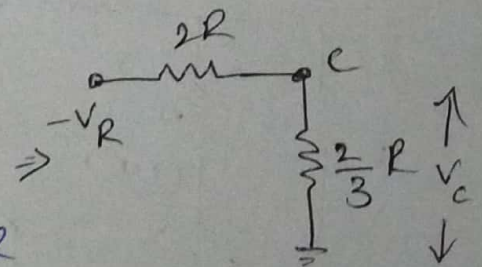 2R
C
-V_R
⇒
2/3 R
V_c